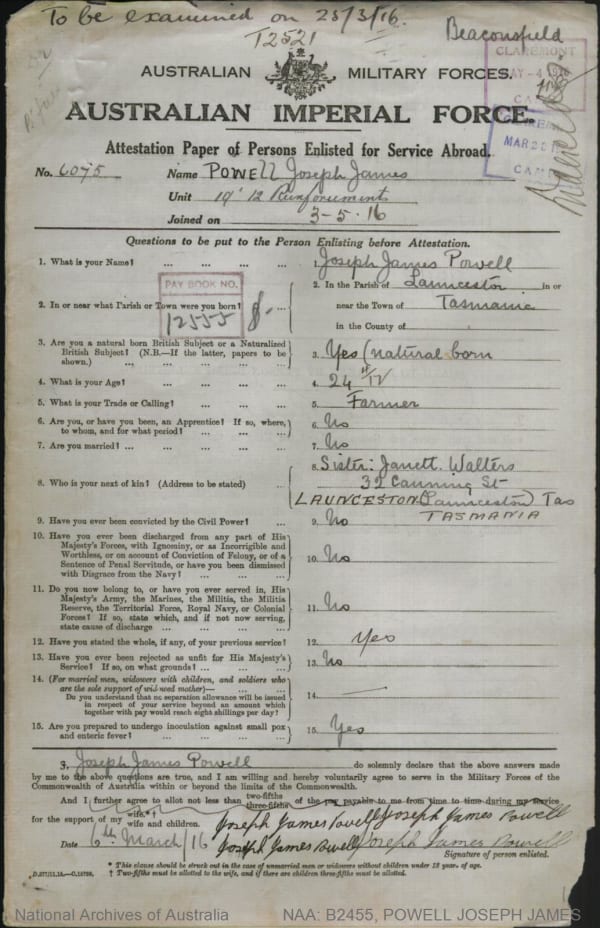 To be examined on 23/3/16.
T2521
Beaconsfield
CLAREMONT
CAMP
MAR
CAMP
AUSTRALIAN MILITARY FORCES.
AUSTRALIAN IMPERIAL FORCE.
Attestation Paper of Persons Enlisted for Service Abroad.
No. 6075 Name POWELL Joseph James
Unit 19/12 Reinforcements
Joined on 3-5-16
Questions to be put to the Person Enlisting before Attestation.
1. What is your Name? ... ... ... ... 1. Joseph James Powell
PAY BOOK NO.
12555
2. In or near what Parish or Town were you born? ... 2. In the Parish of Launceston in or
near the Town of Tasmania
in the County of
3. Are you a natural born British Subject or a Naturalized
British Subject? (N.B.—If the latter, papers to be
shown.) ... ... ... ... ... 3. Yes (natural born
4. What is your Age? ... ... ... ... 4. 24 11/12
5. What is your Trade or Calling? ... ... ... 5. Farmer
6. Are you, or have you been, an Apprentice? If so, where,
to whom, and for what period? ... ... ... 6. No
7. Are you married? ... ... ... ... ... 7. No
8. Who is your next of kin? (Address to be stated) ... 8. Sister: Janett. Walters
32 Canning St
LAUNCESTON (Launceston) Tas
TASMANIA
9. Have you ever been convicted by the Civil Power? ... 9. No
10. Have you ever been discharged from any part of His
Majesty's Forces, with Ignominy, or as Incorrigible and
Worthless, or on account of Conviction of Felony, or of a
Sentence of Penal Servitude, or have you been dismissed
with Disgrace from the Navy? ... ... ... 10. No
11. Do you now belong to, or have you ever served in, His
Majesty's Army, the Marines, the Militia, the Militia
Reserve, the Territorial Force, Royal Navy, or Colonial
Forces? If so, state which, and if not now serving,
state cause of discharge ... ... ... ... 11. No
12. Have you stated the whole, if any, of your previous service? 12. Yes
13. Have you ever been rejected as unfit for His Majesty's
Service? If so, on what grounds? ... ... ... 13. No
14. (For married men, widowers with children, and soldiers who
are the sole support of widowed mother)—
Do you understand that no separation allowance will be issued
in respect of your service beyond an amount which
together with pay would reach eight shillings per day? 14. —
15. Are you prepared to undergo inoculation against small pox
and enteric fever? ... ... ... ... 15. Yes
I, Joseph James Powell do solemnly declare that the above answers made
by me to the above questions are true, and I am willing and hereby voluntarily agree to serve in the Military Forces of the
Commonwealth of Australia within or beyond the limits of the Commonwealth.
And I further agree to allot not less than two-fifths
three-fifths of the pay payable to me from time to time during my service
for the support of my wife.*†
wife and children. Joseph James Powell Joseph James Powell
Date 6th March /16 Joseph James Powell Joseph James Powell
Signature of person enlisted.
* This clause should be struck out in the case of unmarried men or widowers without children under 18 years of age.
† Two-fifths must be allotted to the wife, and if there are children three-fifths must be allotted.
National Archives of Australia NAA: B2455, POWELL JOSEPH JAMES